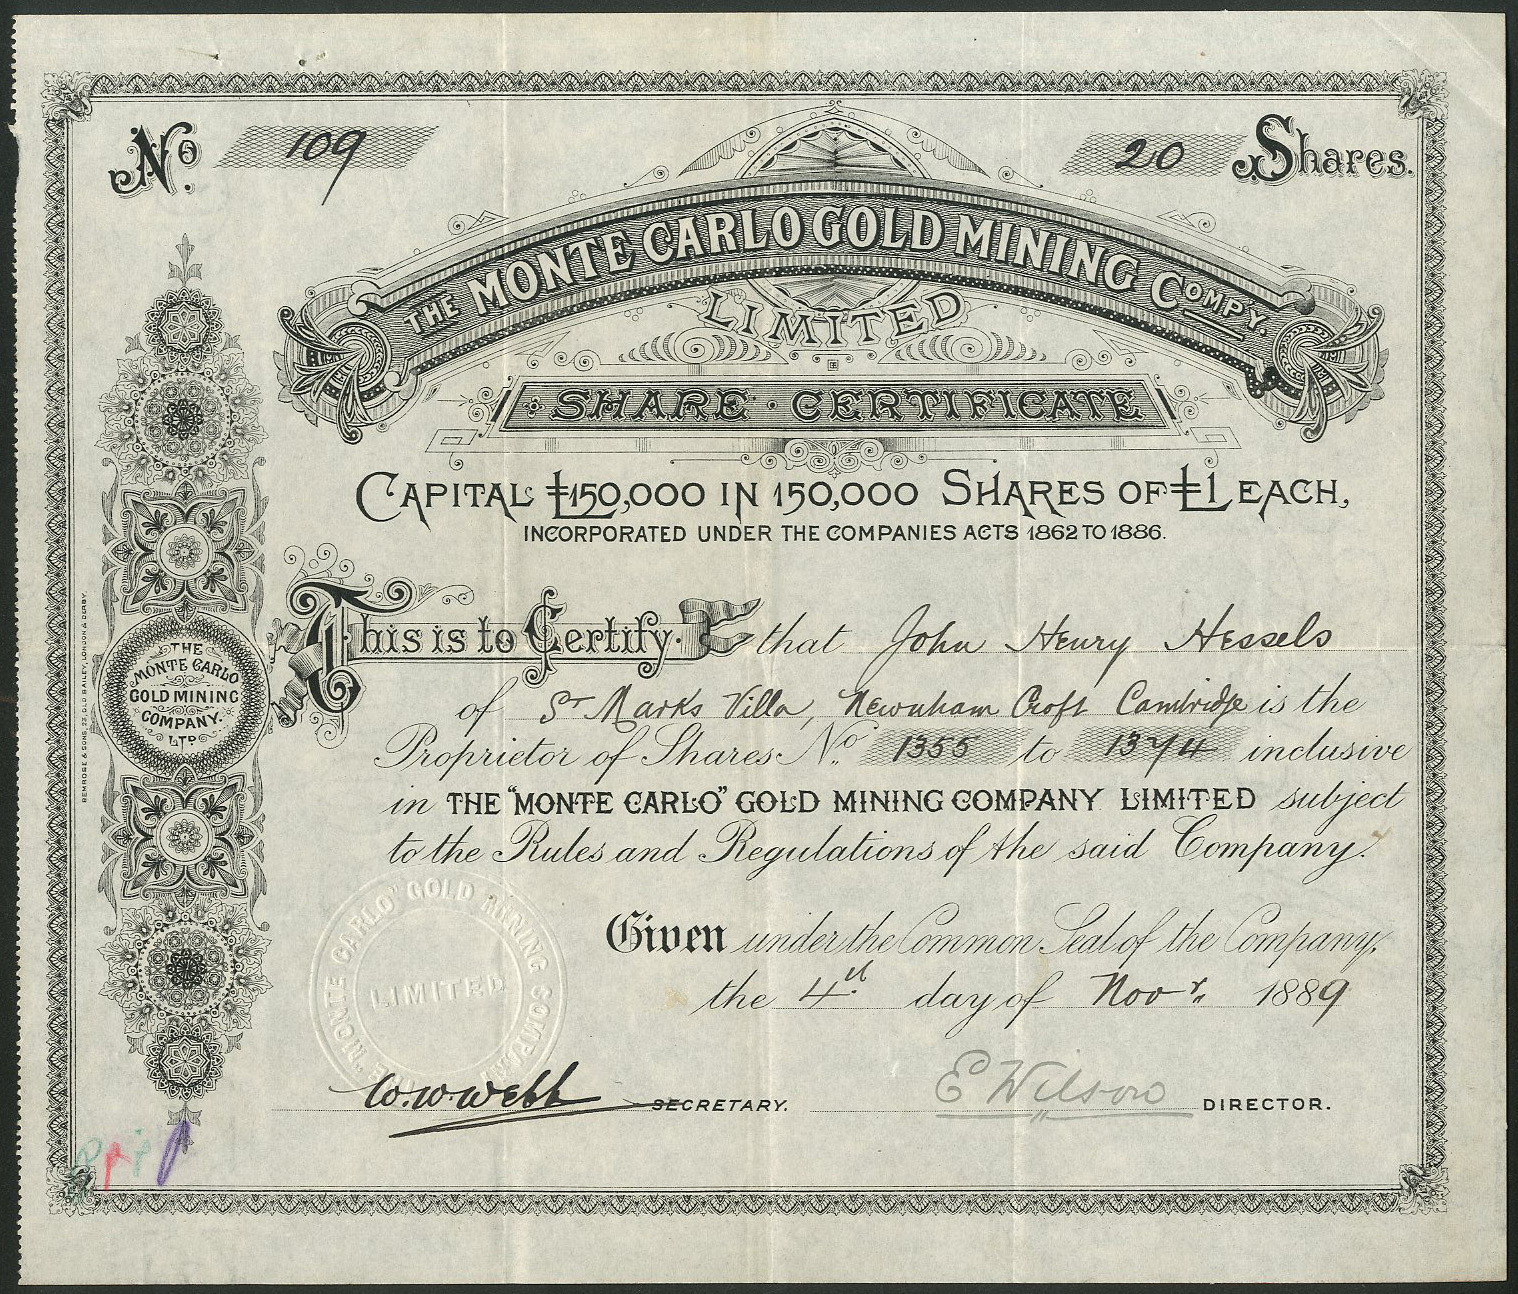 No. 109
20 Shares.
THE MONTE CARLO GOLD MINING COMPY.
LIMITED
SHARE · CERTIFICATE
CAPITAL £150,000 IN 150,000 SHARES OF £1 EACH,
INCORPORATED UNDER THE COMPANIES ACTS 1862 TO 1886.
This is to Certify that John Henry Hessels
of St Marks Villa, Newnham Croft Cambridge is the
Proprietor of Shares No. 1355 to 1374 inclusive
in THE "MONTE CARLO" GOLD MINING COMPANY LIMITED subject
to the Rules and Regulations of the said Company.
Given under the Common Seal of the Company,
the 4th day of Novr. 1889
W. W. Webb SECRETARY. E Wilson DIRECTOR.
THE
MONTE CARLO
GOLD MINING
COMPANY.
LTD
BEMROSE & SONS, 23, OLD BAILEY, LONDON & DERBY.
THE "MONTE CARLO" GOLD MINING COMPANY
LIMITED